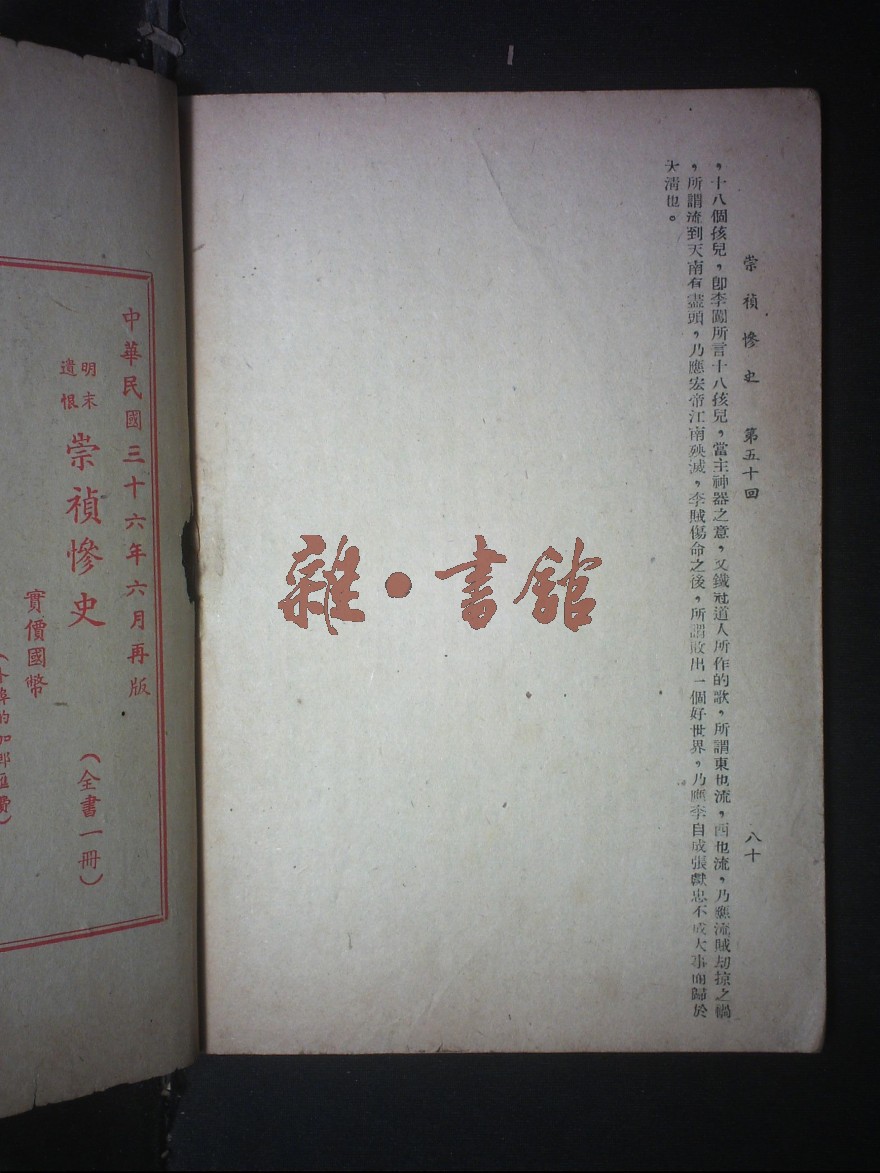 崇禎慘史　第五十回　八十
，十八個孩兒，卽李闖所言十八孩兒，當主神器之意，又鐵冠道人所作的歌，所謂東也流，西也流，乃應流賊刧掠之禍
，所謂流到天南有盡頭，乃應宏帝江南殄滅，李賊傷命之後，所謂敗出一個好世界，乃應李自成張獻忠不成大事而歸於
大淸也。
雜·書館
中華民國三十六年六月再版
明末遺恨
崇禎慘史
（全書一冊）
實價國幣
的加郵匯費）